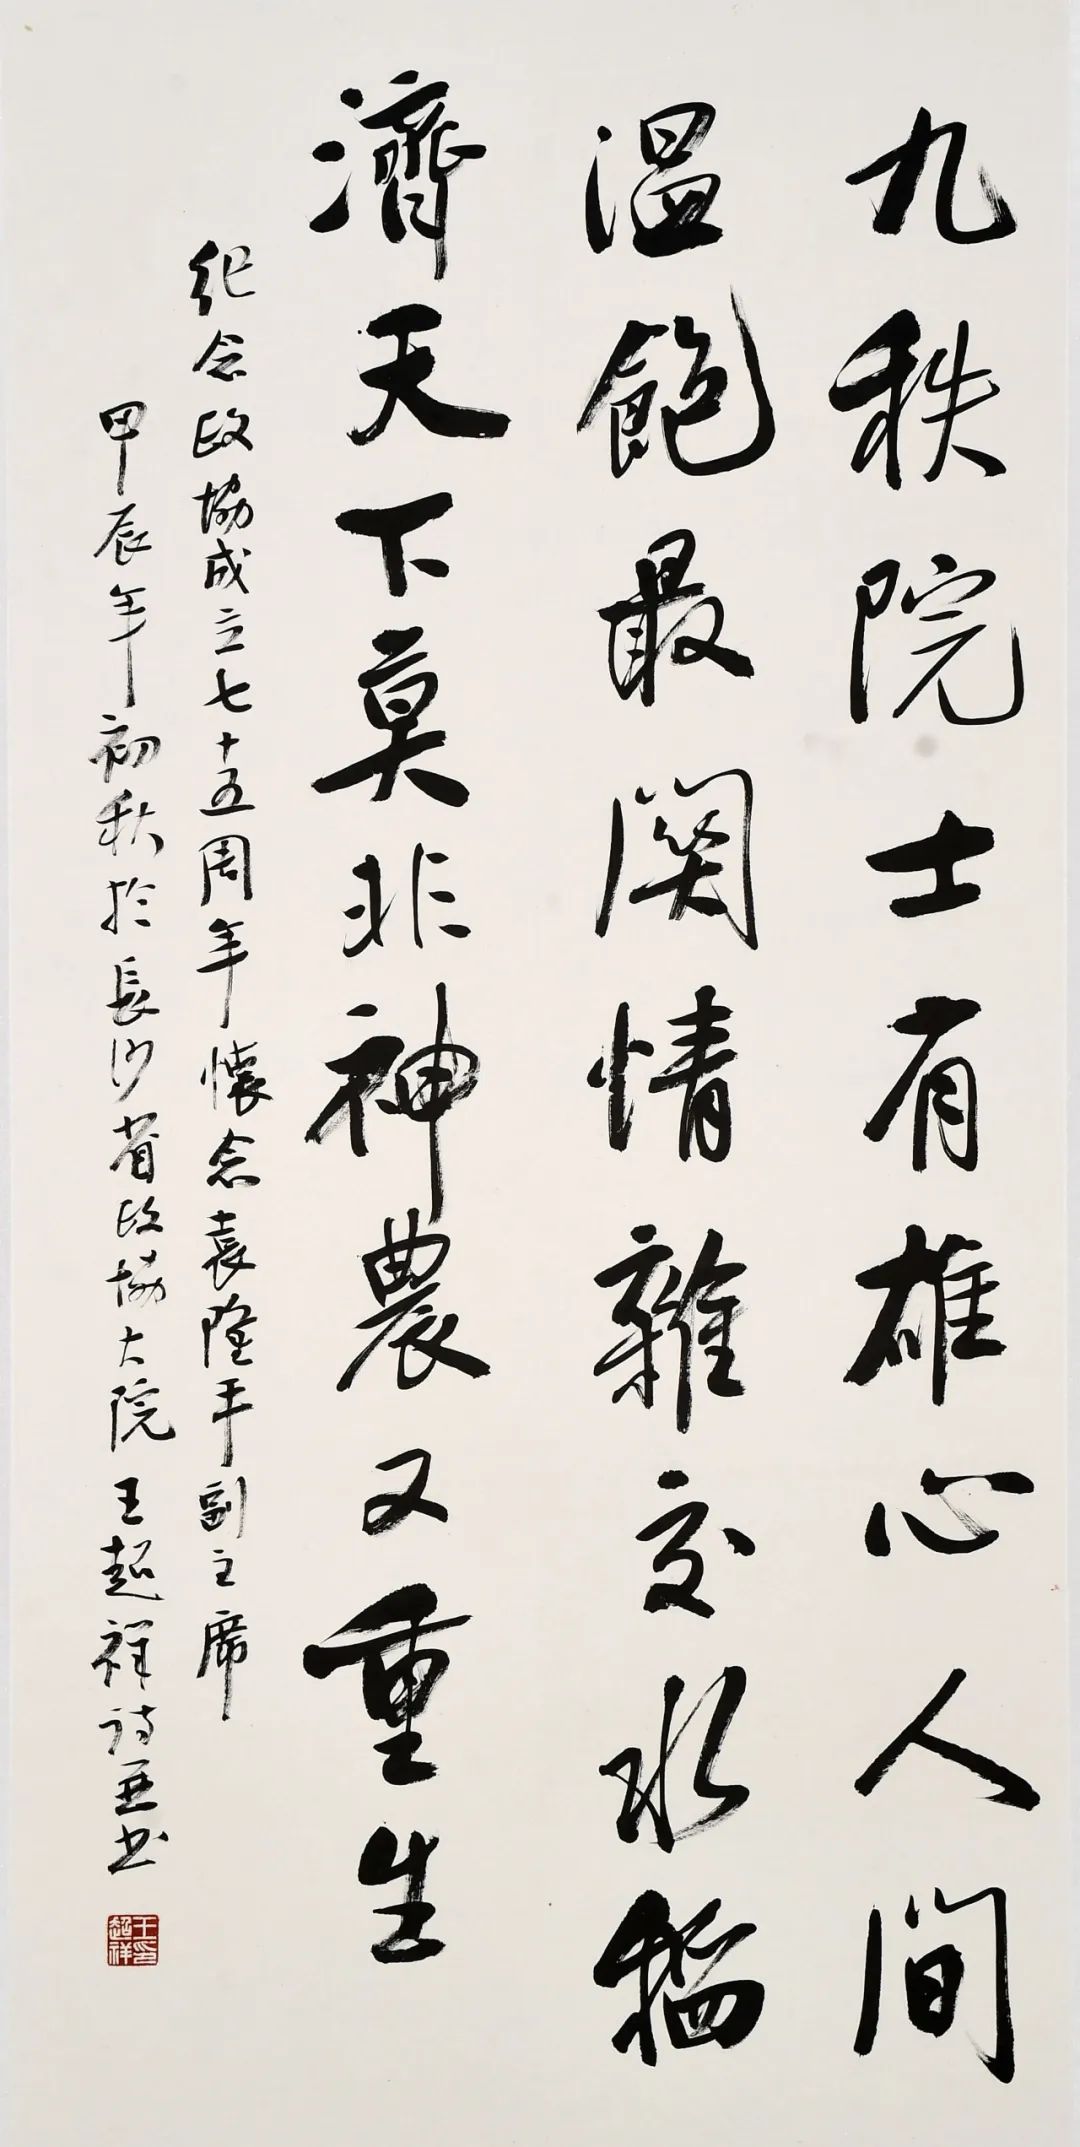 九秩院士有雄心人间
温飽最関情雜交水稻
濟天下莫非神農又重生
纪念政協成立七十五周年懷念袁隆平副主席
甲辰年初秋於長沙省政協大院王超祥诗並书
王超祥印